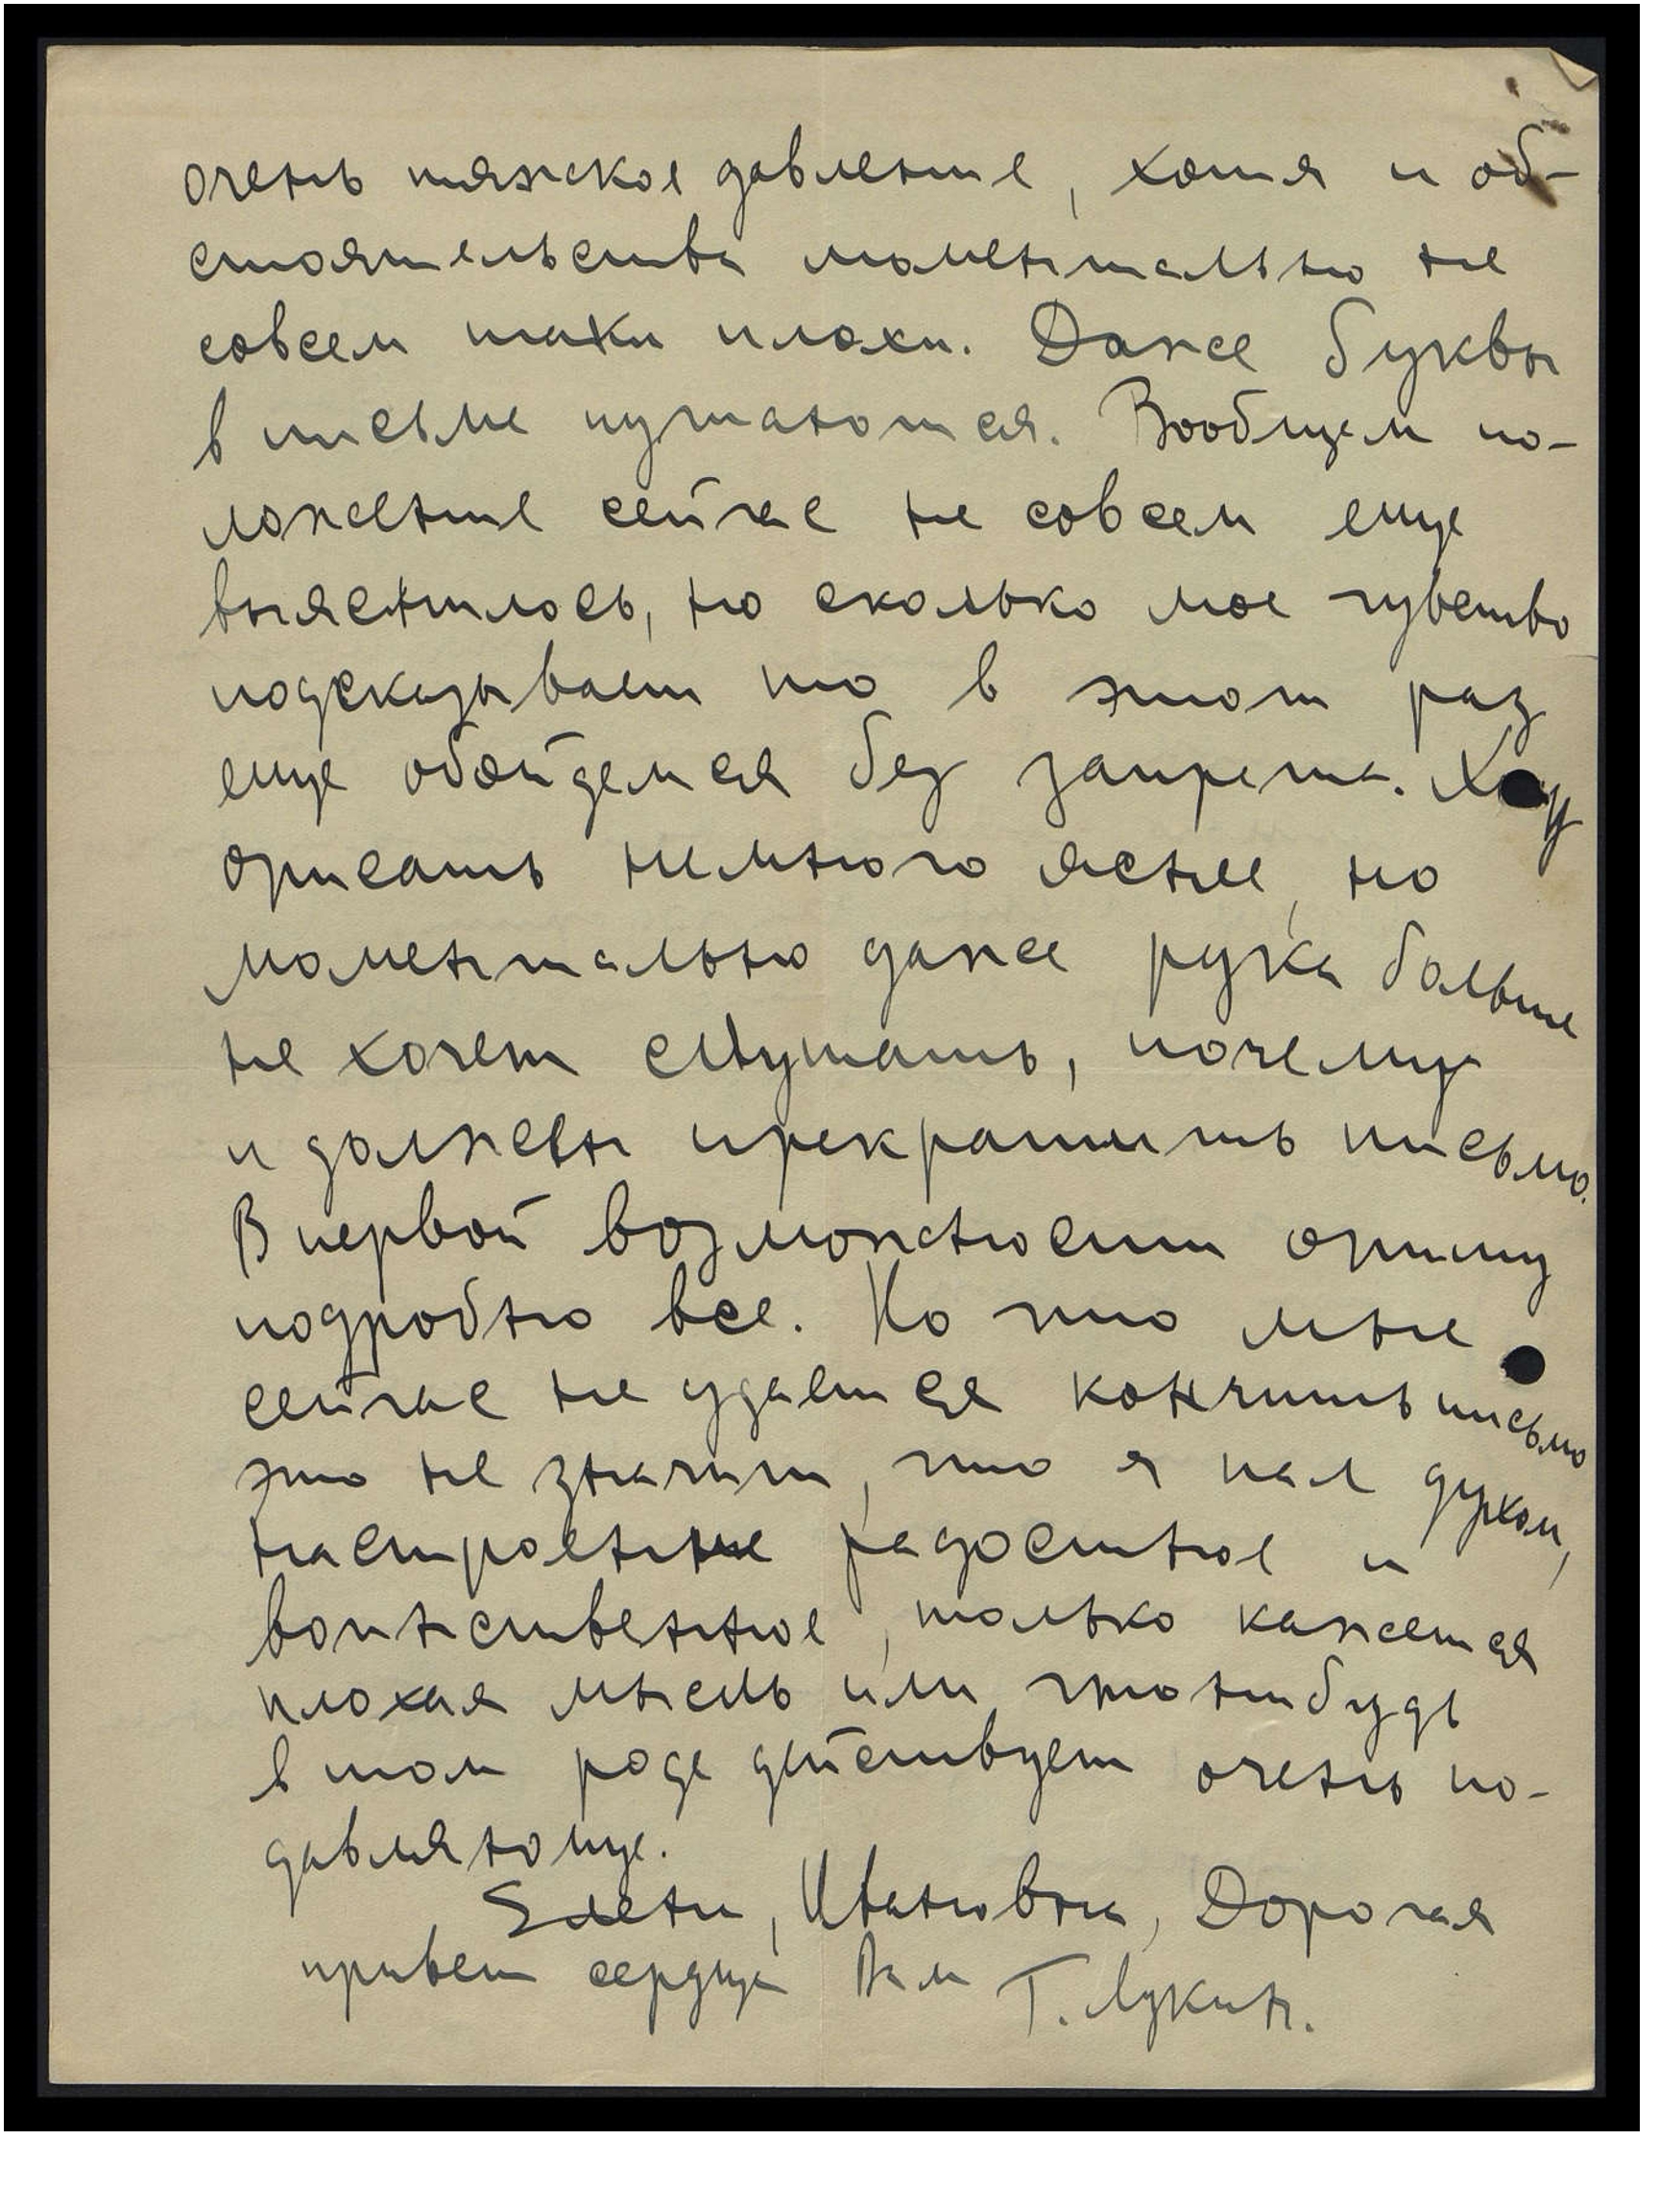 очень тяжское давление, хотя и об-
стоятельства моментально не
совсем таки плохи. Даже буквы
в письме путаются. Вообщем по-
ложение сейчас не совсем еще
выяснилось, но сколько мое чувство
подсказывает то в этот раз
еще обойдемся без запрета. Хочу
описать немного яснее, но
моментально даже рука больше
не хочет слушать, почему
и должен прекратить письмо.
В первой возможности опишу
подробно все. Но что мне
сейчас не удается кончить письмо
это не значит, что я пал духом,
настроение радостное и
воинственное, только кажется
плохая мысль или что нибудь
в том роде действует очень по-
давляюще.
Елена, Ивановна, Дорогая
привет сердца Вам Г. Лукин.